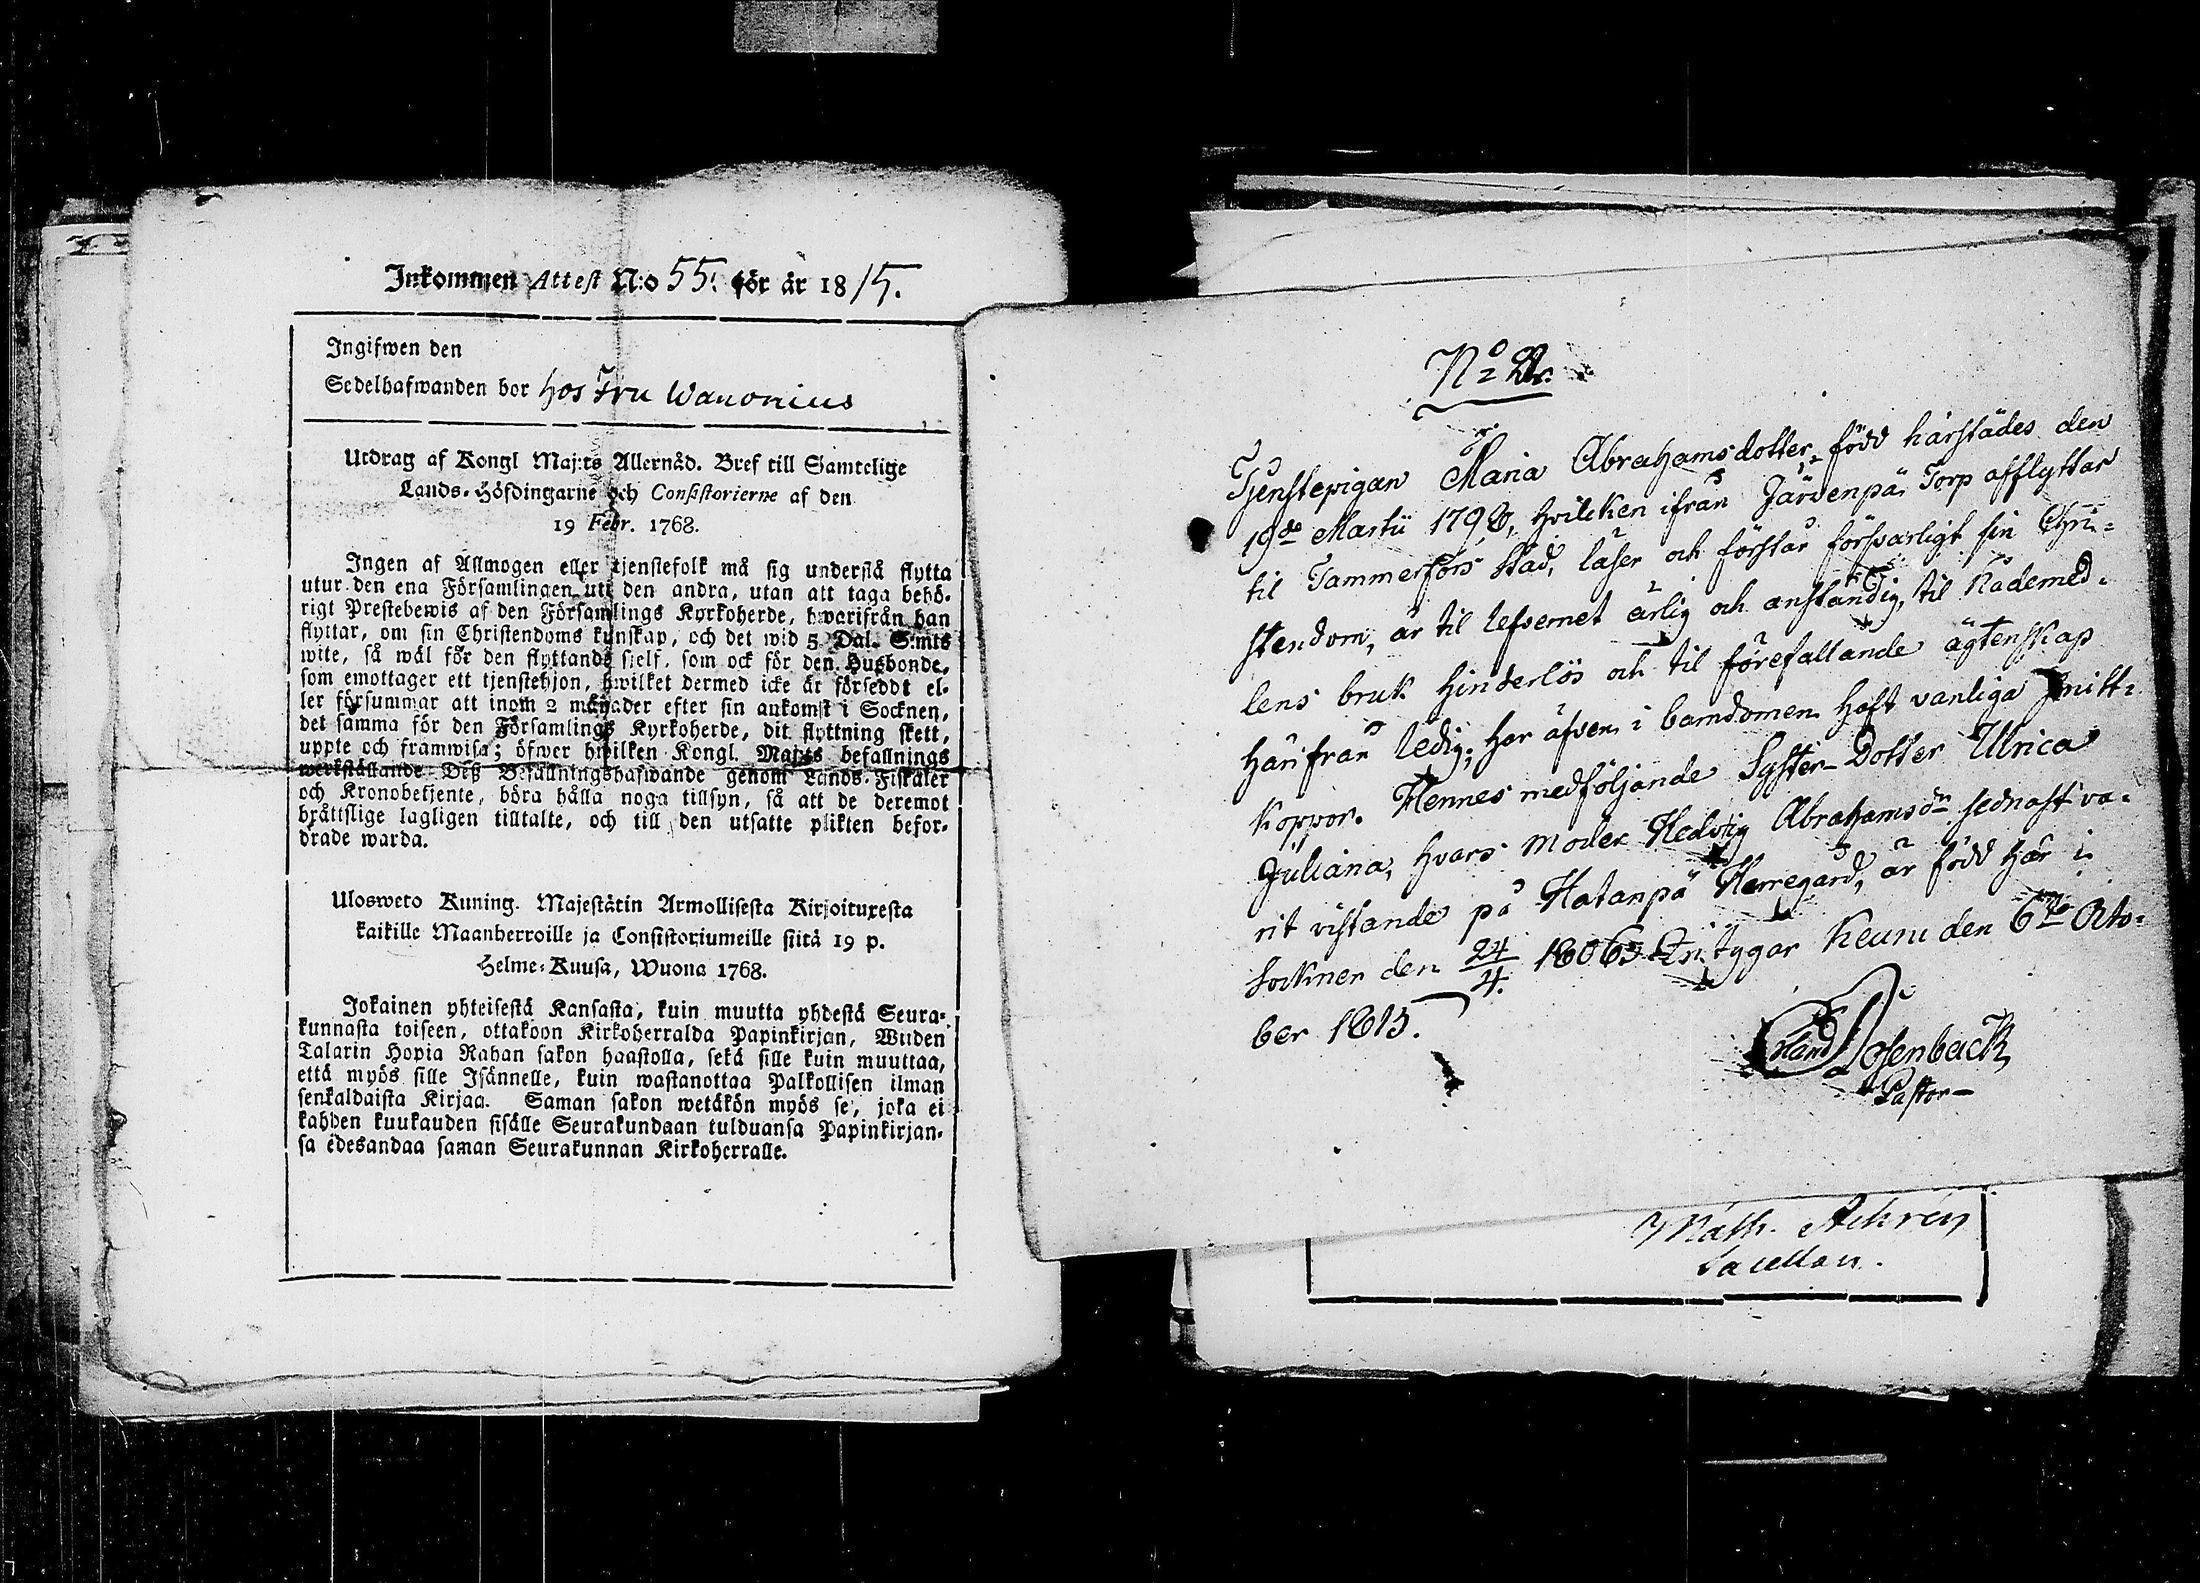 Inkommen Attest N:o 55. för år 1815.
Ingifwen den
Sedelhafwanden bor hos Fru Wanonius
Utdrag af Kongl Maj:ts Allernåd. Bref till Samtelige
Lands-Höfdingarne och Consistorierne af den
19 Febr. 1768.
Ingen af Allmogen eller tjenstefolk må sig understå flytta
utur den ena Församlingen uti den andra, utan att taga behö-
rigt Prestebewis af den Församlings Kyrkoherde, hwarifrån han
flyttar, om sin Christendoms kunskap, och det wid 5 Dal. S:mts
wite, så wäl för den flyttande sjelf, som ock för den Husbonde,
som emottager ett tjenstehjon, hwilket dermed icke är förseddt el-
ler försummar att inom 2 månader efter sin ankomst i Socknen,
det samma för den Församlings Kyrkoherde, dit flyttning skett,
uppte och framwisa; öfwer hwilken Kongl. Maj:ts befallnings
werkställande Deß Befallningshafwande genom Lands-Fiskaler
och Kronobetjente, böra hålla noga tillsyn, så att de deremot
bråttslige lagligen tilltalte, och till den utsatte plikten befor-
drade warda.
Ulosweto Kuning. Majestätin Armollisesta Kirjoituxesta
kaikille Maanherroille ja Consistoriumeille siitä 19 p.
Helme-Kuusa, Wuona 1768.
Jokainen yhteisestä Kansasta, kuin muutta yhdestä Seura-
kunnasta toiseen, ottakoon Kirkoherralda Papinkirjan, Wiiden
Talarin Hopia Rahan sakon haastolla, sekä sille kuin muuttaa,
että myös sille Isännelle, kuin wastanottaa Palkollisen ilman
senkaldaista Kirjaa. Saman sakon wetäkön myös se, joka ei
kahden kuukauden sisälle Seurakundaan tulduansa Papinkirjan-
sa edesandaa saman Seurakunnan Kirkoherralle.
No
Tjenstepigan Maria Abrahamsdotter, född härstädes den
19de Martii 1796, hvilcken ifrån Järvenpä Torp afflyttar
til Tammerfors Stad, läser och förstår försvarligt sin Chri-
stendom, är til lefvernet ärlig och anständig, til Nådemed-
lens bruk hinderlös och til förefallande ägtenskap
härifrån ledig; har äfven i barndomen haft vanliga smitt-
koppor. Hennes medföljande Syster-Dotter Ulrica
Juliana, hvars moder Hedvig Abrahamsdr sednast va-
rit vistande på Hatanpä Herregård, är född här i
Socknen den 24/4 1806. Intygar Keuru den 6te Octo-
ber 1815.
Rosenback
Pastor
Math. Achrén
Sacellan.